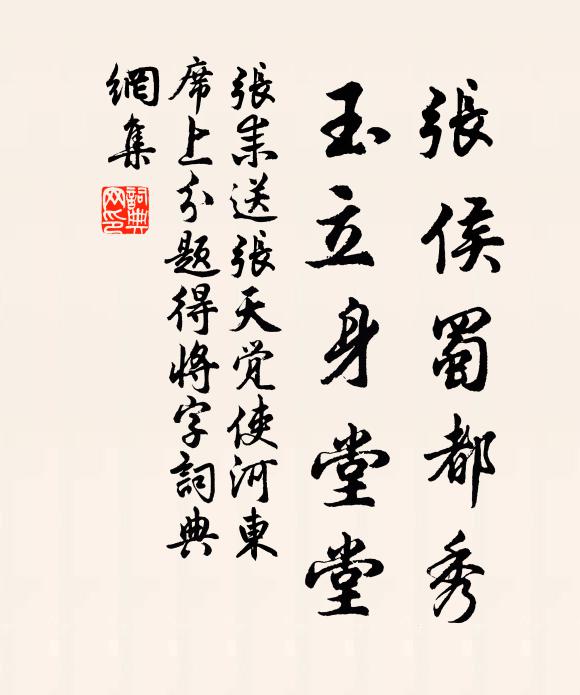 張侯蜀都秀
玉立身堂堂
張耒送張天覺使河東
席上分題得將字詞典
網集
詞典網印